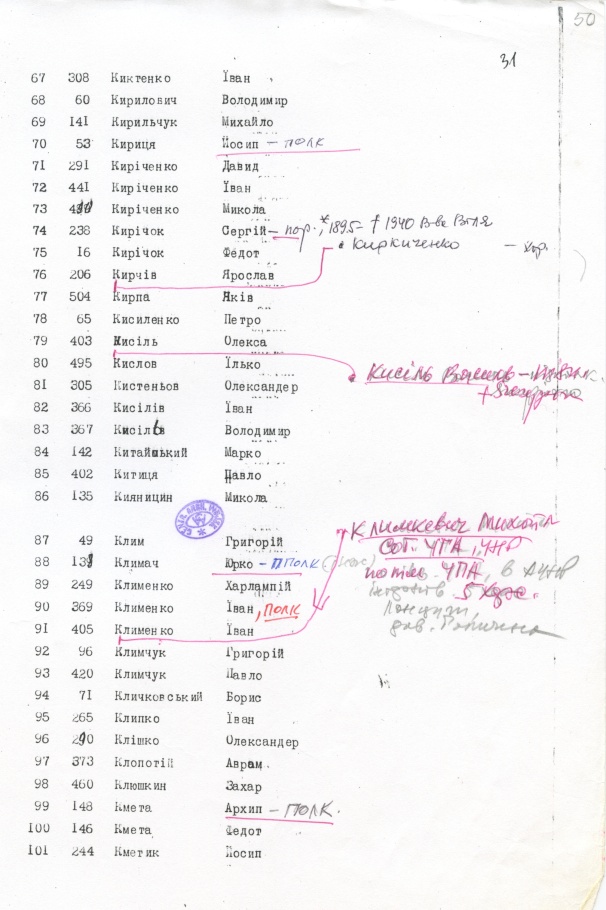 50
31
67 308 Киктенко Їван
68 60 Кирилович Володимир
69 141 Кирильчук Михайло
70 53 Кириця Йосип – ПОЛК
71 291 Киріченко Давид
72 441 Киріченко Їван
73 Киріченко Микола
74 238 Кирічок Сергій – пор., *1895 – † 1940
75 16 Кирічок Федот Киркиченко – хор.
76 206 Кирчів Ярослав
77 504 Кирпа Яків
78 65 Кисиленко Петро
79 403 Кисіль Олекса
80 495 Кислов Їлько Кисіль
81 305 Кистеньов Олександер
82 366 Кисілів Їван
83 367 Володимир
84 142 Китайський Марко
85 402 Китиця Павло
86 135 Кияницин Микола
Климкевич Михайл
87 49 Клим Григорій сот. УПА, УНР
88 Климач Юрко – ППОЛК потім УПА, в
89 249 Клименко Харлампій
90 369 Клименко Їван, ПОЛК
91 405 Клименко Їван
92 96 Климчук Григорій
93 420 Климчук Павло
94 71 Кличковський Борис
95 265 Клипко Їван
96 290 Клішко Олександер
97 373 Клопотій Аврам
98 460 Клюшкин Захар
99 148 Кмета Архип – ПОЛК.
100 146 Кмета Федот
101 244 Кметик Йосип